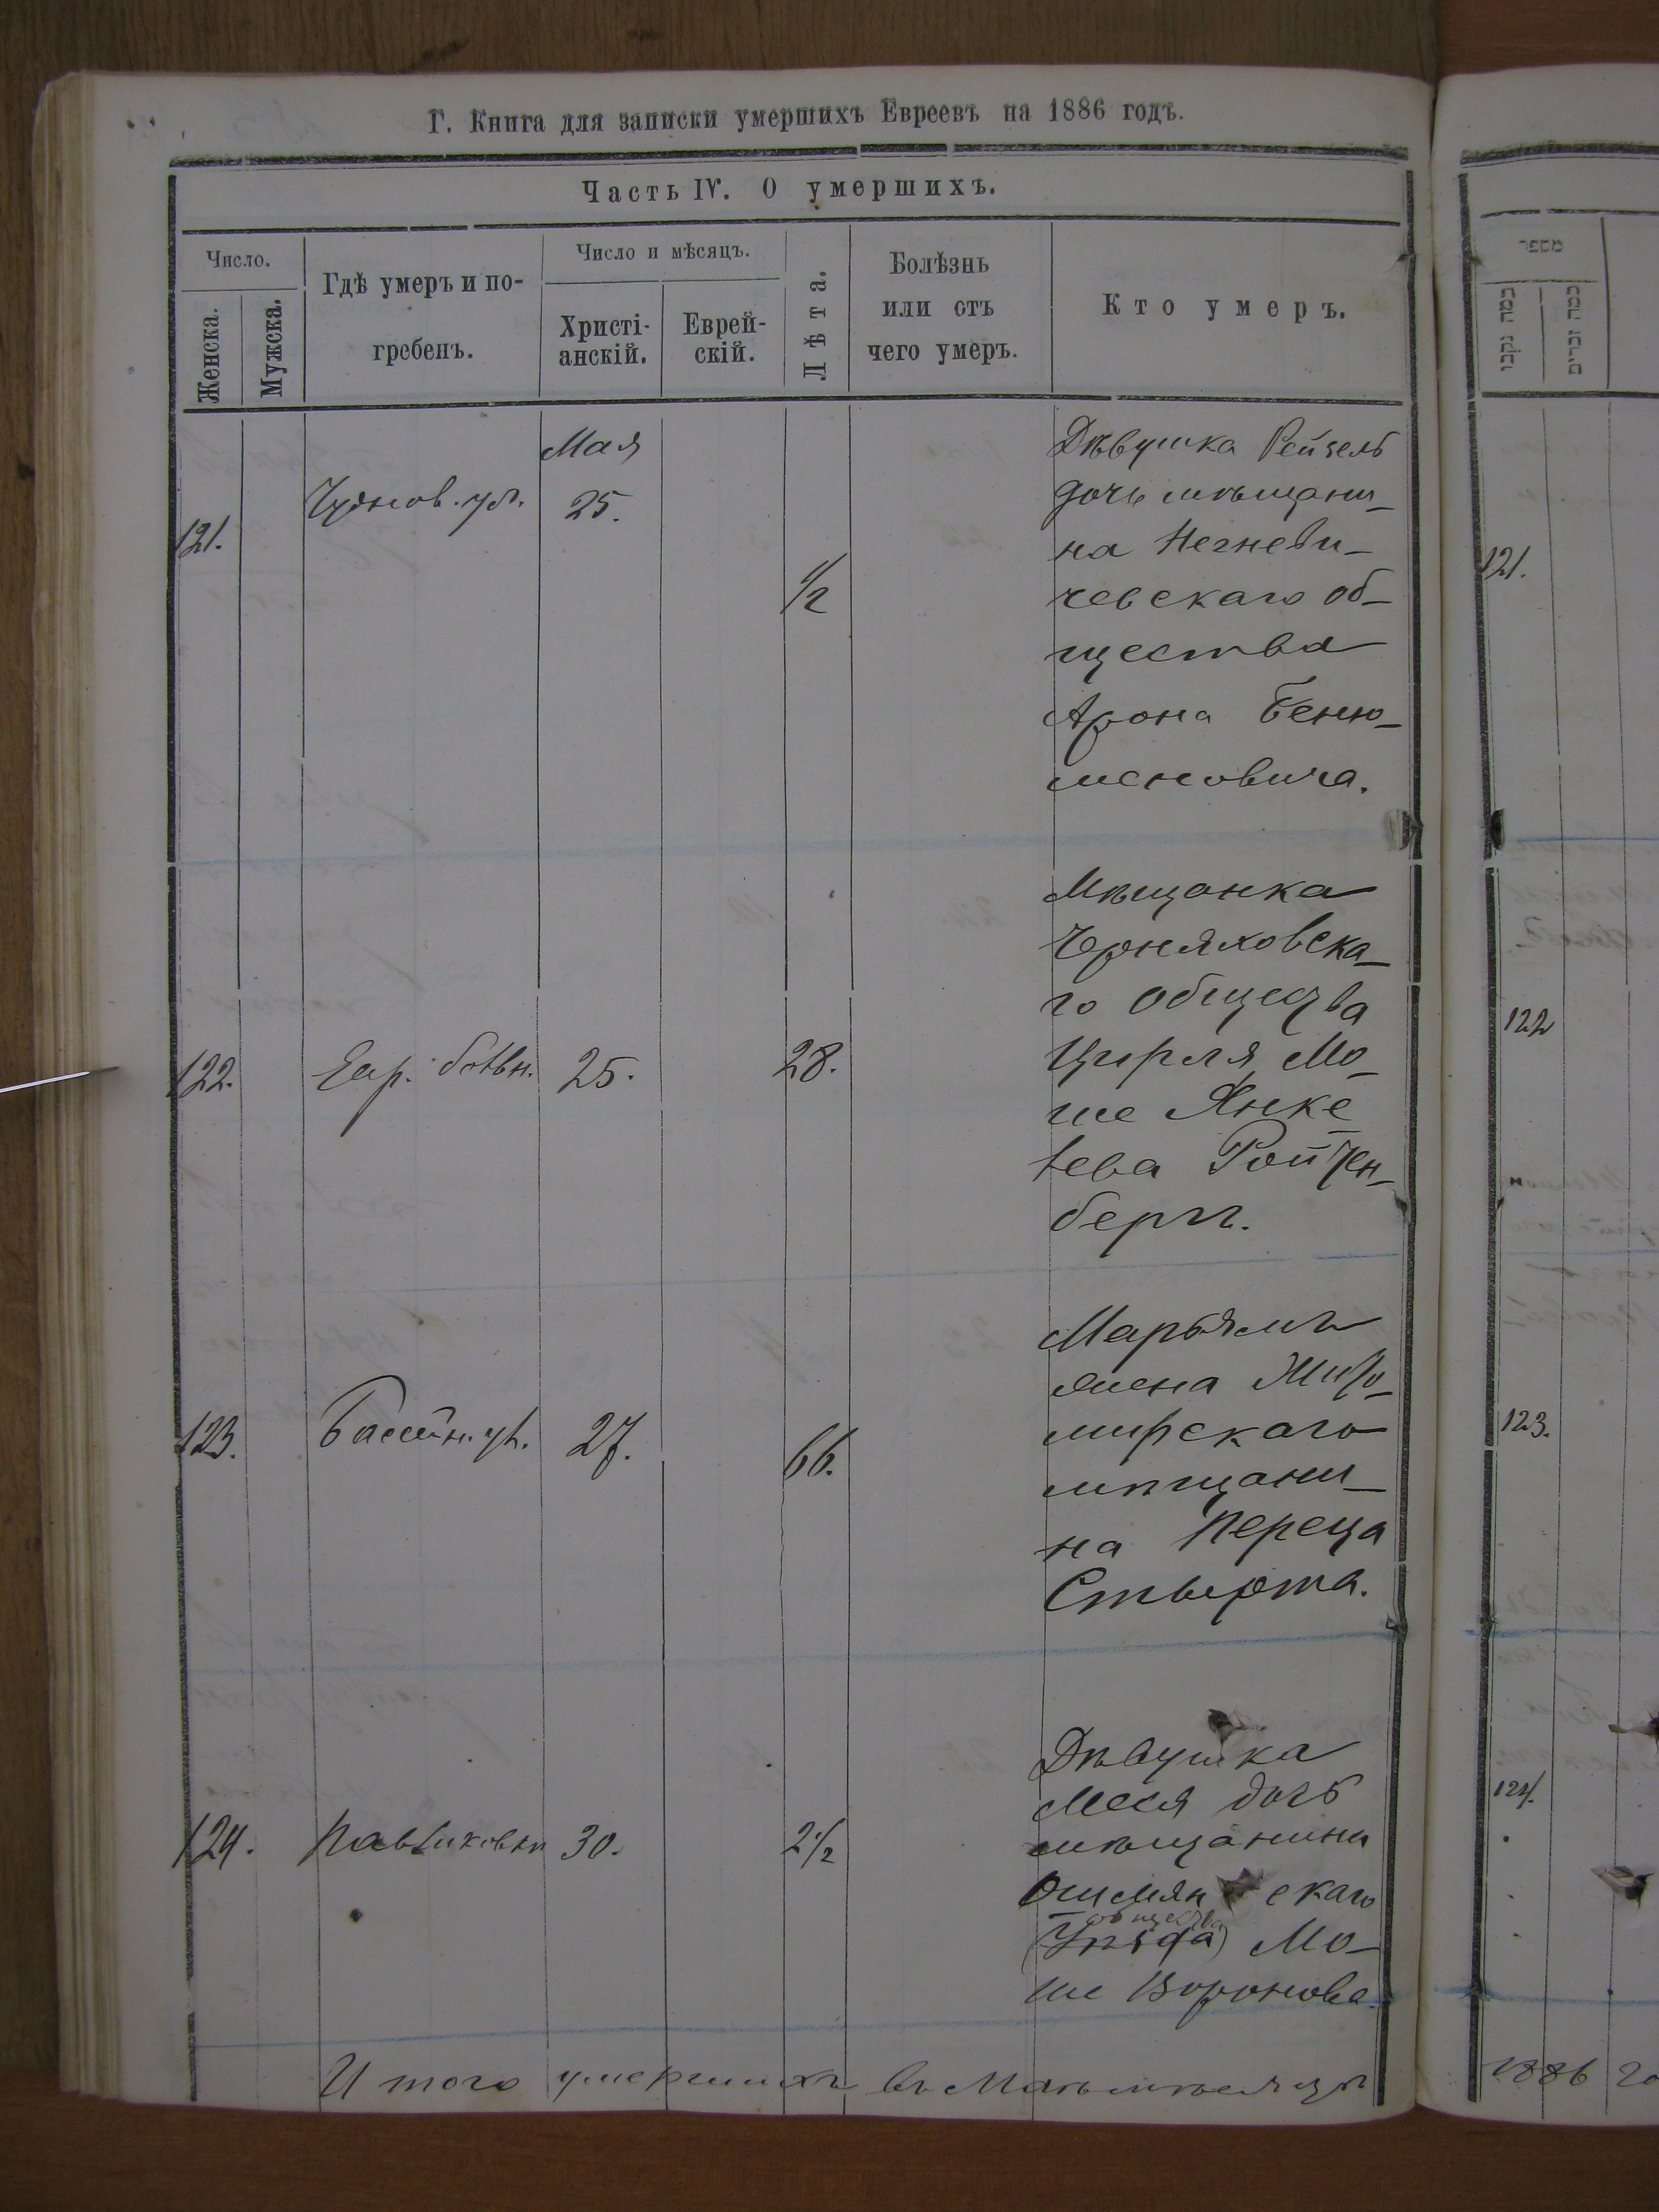 Г. Книга для записки умершихъ Евреевъ на 1886 годъ.
Часть IV. О умершихъ.
Число.
Женска.
Мужска.
Гдѣ умеръ и по-
гребенъ.
Число и мѣсяцъ.
Христі-
анскій.
Еврей-
скій.
Лѣта.
Болѣзнь
или отъ
чего умеръ.
Кто умеръ.
Мая
121.
Чуднов. ул.
25.
1/2
Дѣвушка Рейзель
дочь мѣщани-
на Негневи-
чевскаго об-
щества
Арона Беню-
меновича.
122.
Евр. больн.
25.
28.
Мѣщанка
Черняховска-
го общества
Цирля Мо-
ше Янке
лева Ройтен-
бергъ.
123.
Бассейн. ул.
27.
66.
Марьямъ
жена Жито-
мирскаго
мѣщани-
на Переца
Стырта.
124.
Павликовки
30.
2 1/2
Дѣвушка
Меся дочь
мѣщанина
Ошмянскаго
общества
(Уѣзда) Мо-
ше Воронова.
Итого умершихъ въ Маѣ мѣсяцѣ
121.
122
123.
124.
1886 го